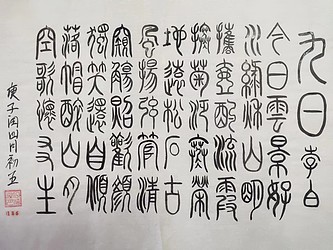 九日 李白
今日雲景好
水綠秋山明
攜壺酌流霞
搴菊泛寒榮
地遠松石古
風揚弦管清
窺觴照歡顏
獨笑還自傾
落帽醉山月
空歌懷友生
庚子閏四月初五